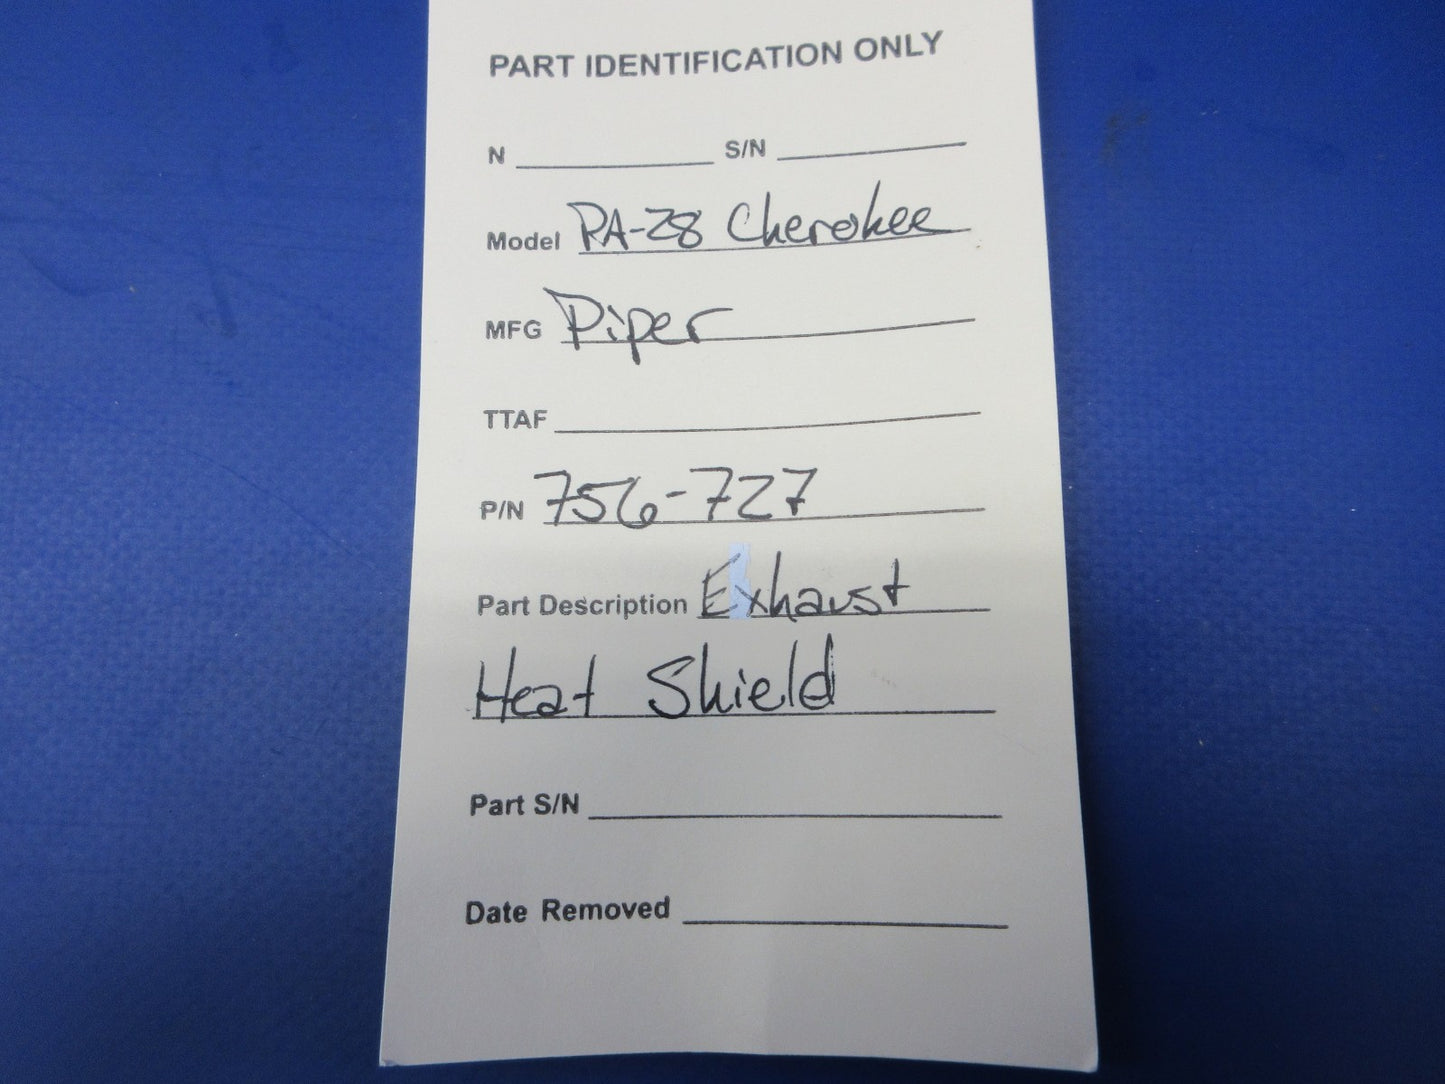 PART IDENTIFICATION ONLY
N S/N
Model PA-28 Cherokee
MFG Piper
TTAF
P/N 756-727
Part Description Exhaust
Heat Shield
Part S/N
Date Removed